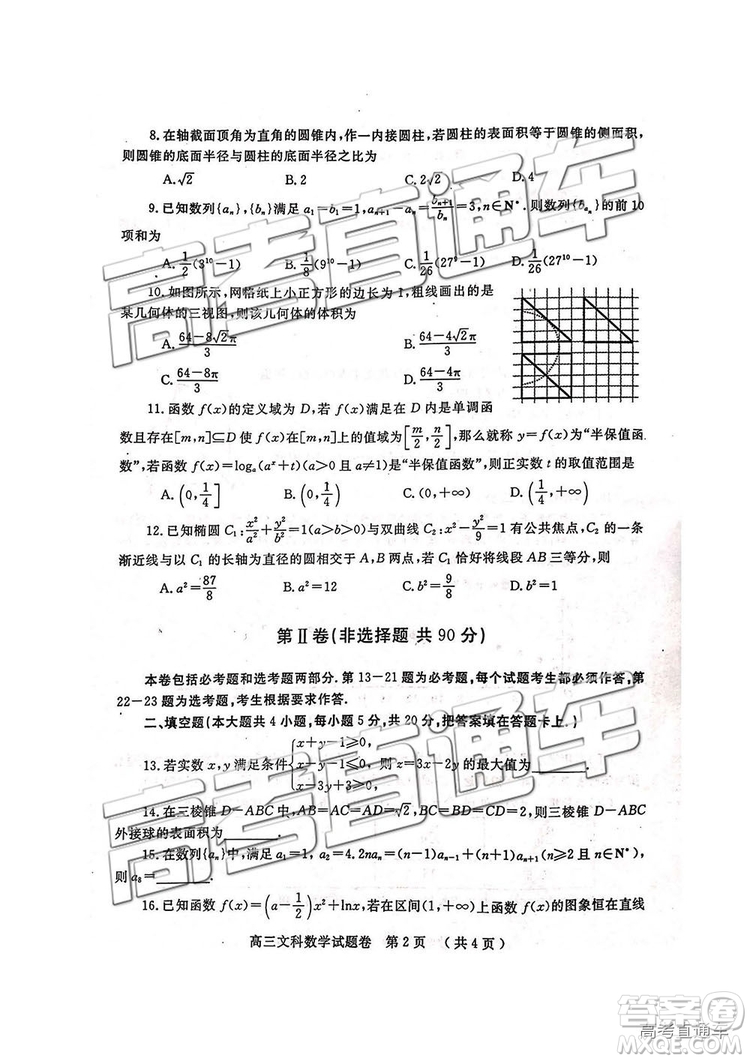 8.在轴截面顶角为直角的圆锥内,作一内接圆柱,若圆柱的表面积等于圆锥的侧面积,
则圆锥的底面半径与圆柱的底面半径之比为
A.√2 B.2 C.2√2 D.4
9.已知数列{aₙ},{bₙ}满足 a₁=b₁=1,aₙ₊₁-aₙ=bₙ₊₁/bₙ=3,n∈N*.则数列{b_{aₙ}}的前10
项和为
A.1/2(3¹⁰-1) B.1/8(9¹⁰-1) C.1/26(27⁹-1) D.1/26(27¹⁰-1)
10.如图所示,网格纸上小正方形的边长为1,粗线画出的是
某几何体的三视图,则该几何体的体积为
A.(64-8√2π)/3 B.(64-4√2π)/3
C.(64-8π)/3 D.(64-4π)/3
11.函数 f(x)的定义域为 D,若 f(x)满足在 D 内是单调函
数且存在[m,n]⊆D 使 f(x)在[m,n]上的值域为[m/2,n/2],那么就称 y=f(x)为“半保值函
数”,若函数 f(x)=logₐ(aˣ+t)(a>0 且 a≠1)是“半保值函数”,则正实数 t 的取值范围是
A.(0,1/4] B.(0,1/4) C.(0,+∞) D.(1/4,+∞)
12.已知椭圆 C₁:x²/a²+y²/b²=1(a>b>0)与双曲线 C₂:x²-y²/9=1 有公共焦点,C₂的一条
渐近线与以 C₁的长轴为直径的圆相交于 A,B 两点,若 C₁恰好将线段 AB 三等分,则
A.a²=87/8 B.a²=12 C.b²=9/8 D.b²=1
第Ⅱ卷(非选择题 共90分)
本卷包括必考题和选考题两部分.第13-21题为必考题,每个试题考生都必须作答,第
22-23题为选考题,考生根据要求作答.
二、填空题(本大题共4小题,每小题5分,共20分,把答案填在答题卡上.)
13.若实数 x,y 满足条件{x+y-1≥0, x-y+1≥0, x+y+3≥0, 则 z=3x-2y 的最大值为______.
14.在三棱锥 D-ABC 中,AB=AC=AD=√2,BC=BD=CD=2,则三棱锥 D-ABC
外接球的表面积为______.
15.在数列{aₙ}中,满足 a₁=1,a₂=4.2naₙ=(n-1)aₙ₋₁+(n+1)aₙ₊₁(n≥2且 n∈N*),
则 a₈=______.
16.已知函数 f(x)=(a-1/2)x²+lnx,若在区间(1,+∞)上函数 f(x)的图象恒在直线
高三文科数学试题卷 第2页 (共4页)
高考直通车
高考直通车
答案圈
MXQE.COM
高考直通车